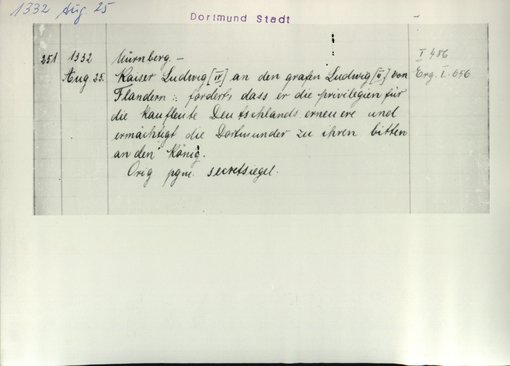 1332 Aug 25
Dortmund Stadt
251 1332 Nürnberg. — I 486
Aug 25. Kaiser Ludwig [IV] an den grafen Ludwig [ ] von Erg. I. 656
Flandern: fordert, dass er die privilegien für
die Kaufleute Deutschlands erneuere und
ermächtigt die Dortmunder zu ihren bitten
an den König.
Orig pgm. secretsiegel.